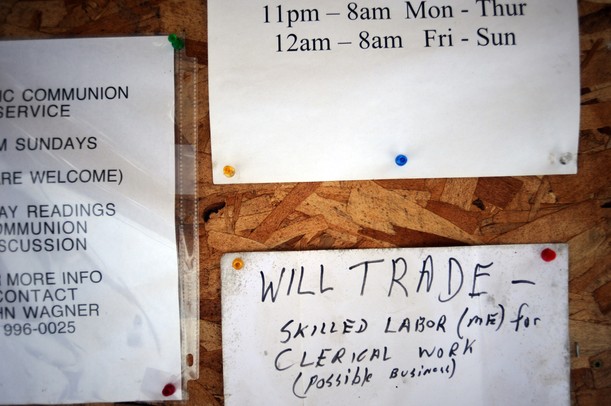 IC COMMUNION
SERVICE
M SUNDAYS
ARE WELCOME)
AY READINGS
OMMUNION
SCUSSION
MORE INFO
CONTACT
HN WAGNER
996-0025
11pm – 8am Mon - Thur
12am – 8am Fri - Sun
WILL TRADE –
SKILLED LABOR (ME) for
CLERICAL WORK
(Possible Business)